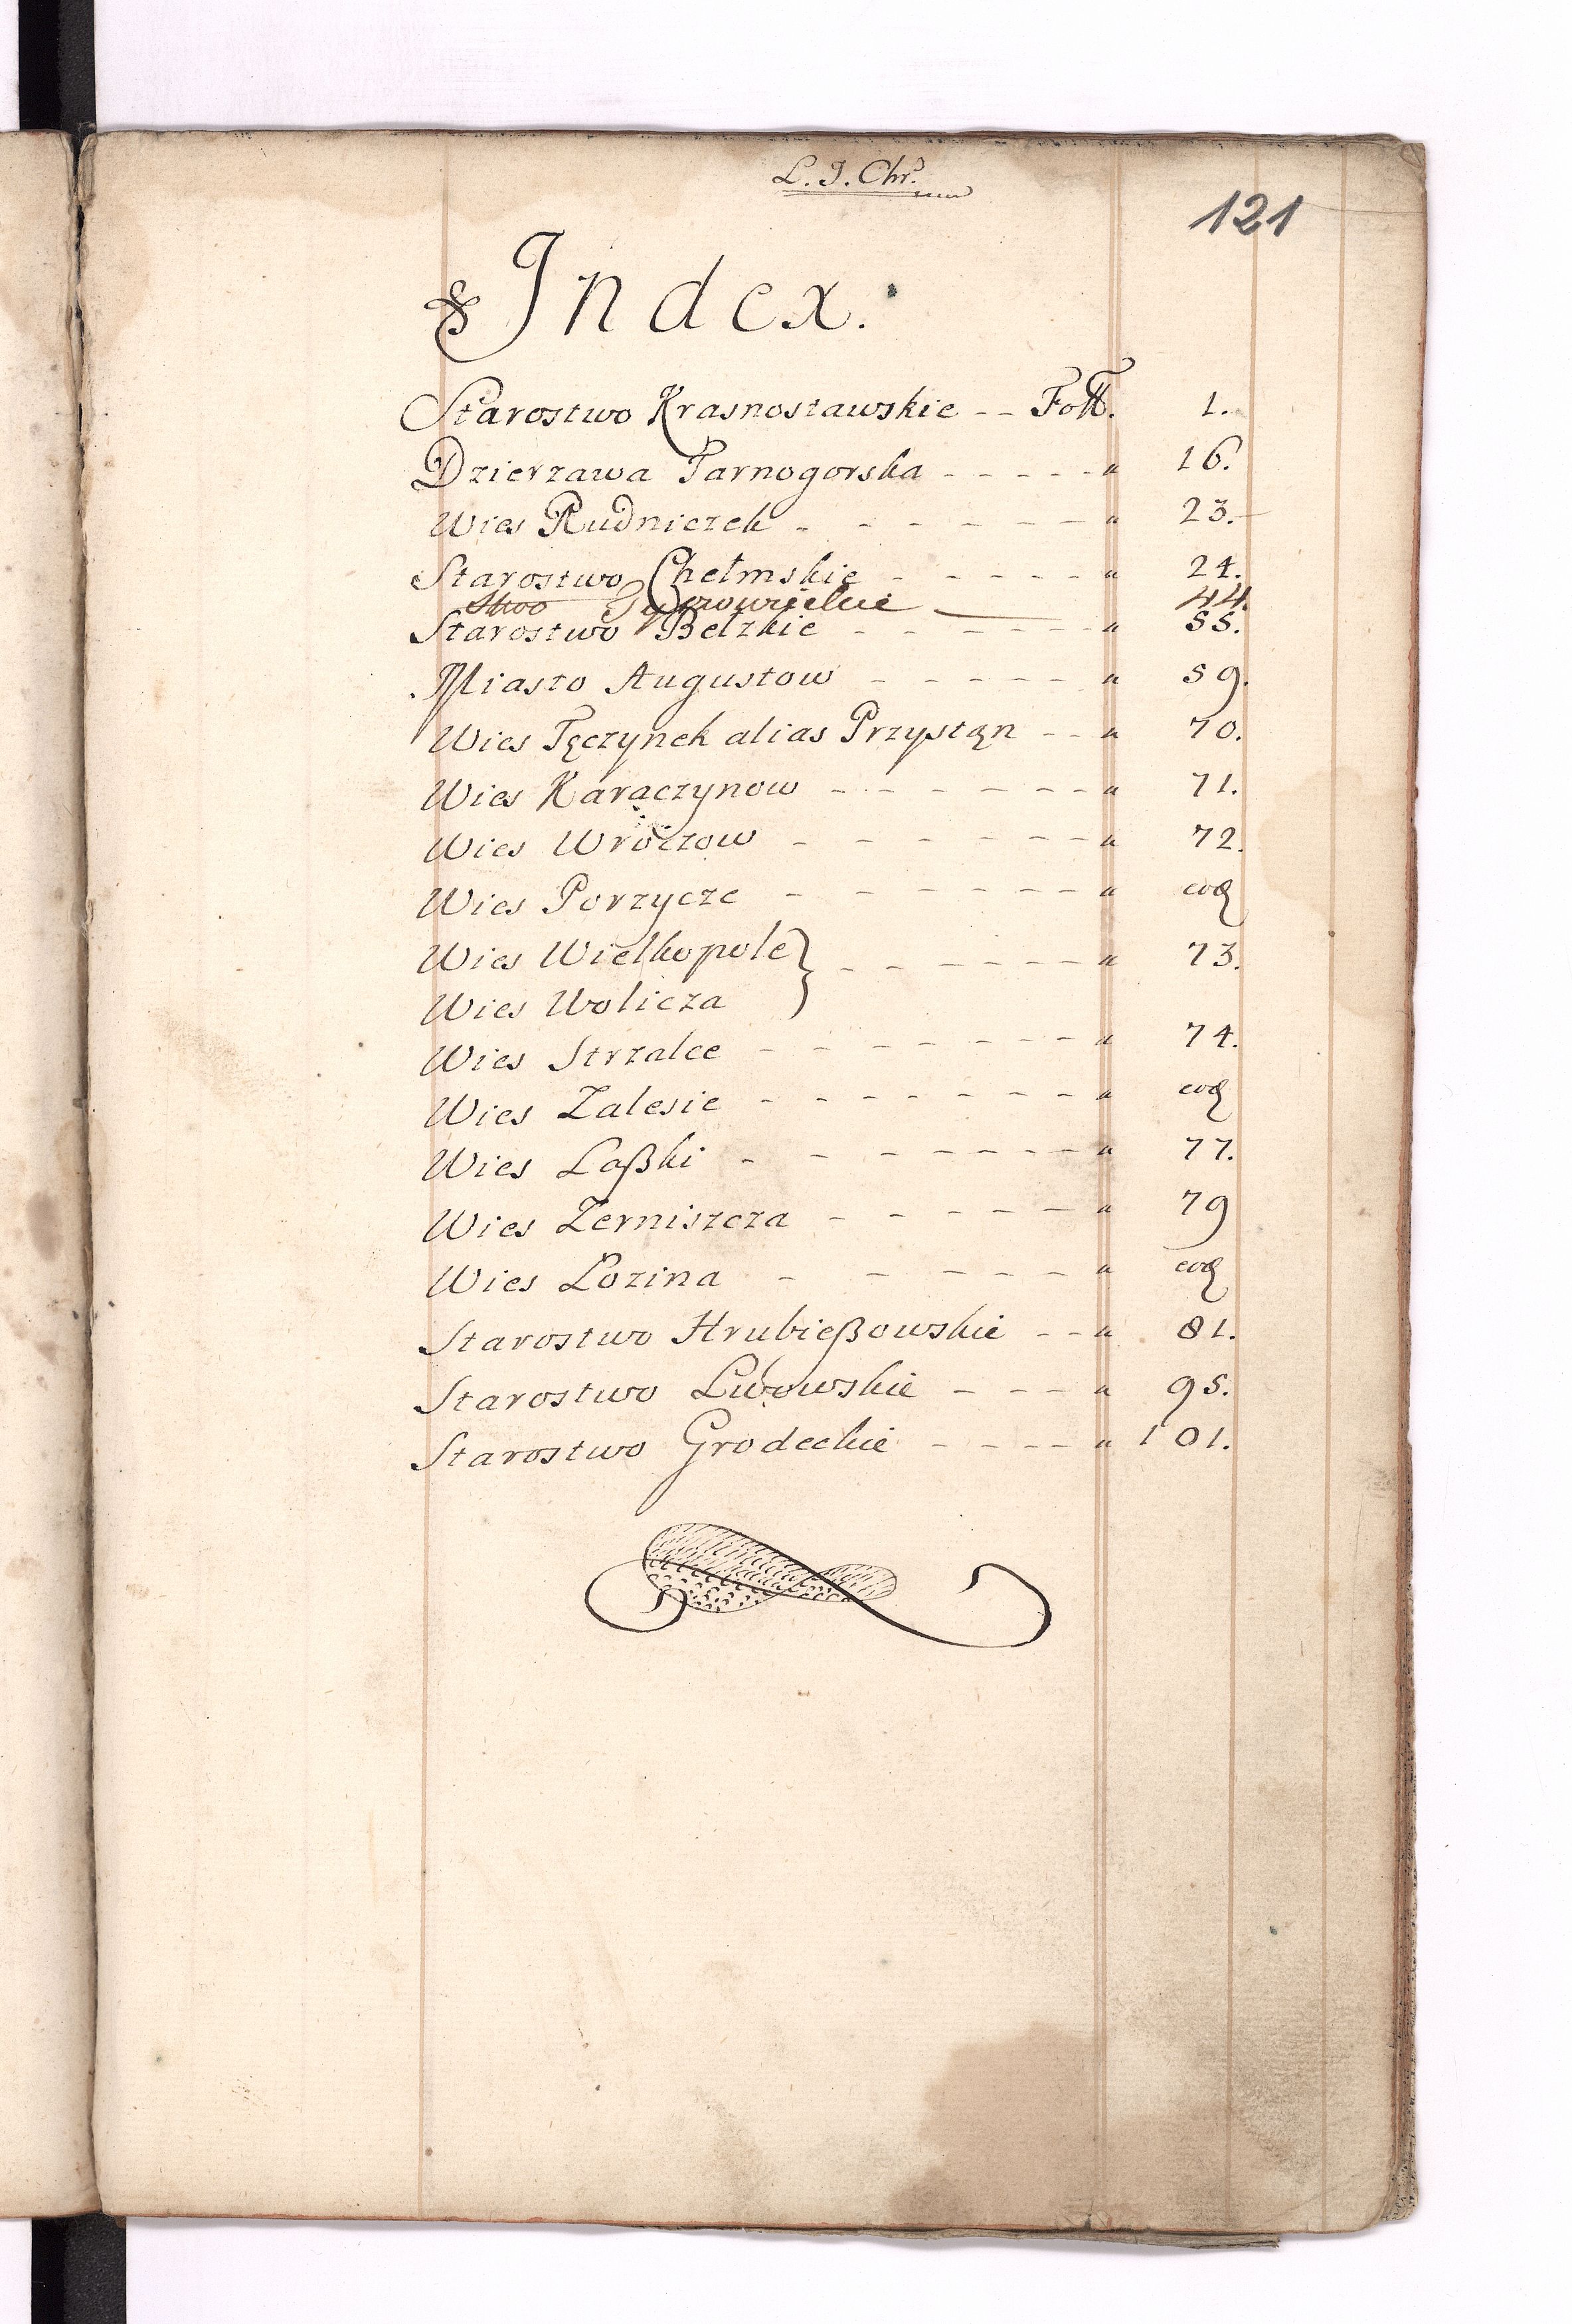 L. J. Chr.
121
Index.
Starostwo Krasnostawskie -- Foll. 1.
Dzierzawa Tarnogorska - - - - - " 16.
Wies Rudniczek - - - - - - " 23.
Starostwo Chełmskie - - - - - " 24.
Stwo 44.
Starostwo Bełzkie - - - - - - " 55.
Miasto Augustow - - - - - " 59.
Wies Tęczynek alias Przystąn - - " 70.
Wies Karaczynow - - - - - - " 71.
Wies Wroczow - - - - - - " 72.
Wies Porzycze - - - - - - " eod
Wies Wielkopole } - - - - - - " 73.
Wies Wolicza
Wies Strzalce - - - - - - - " 74.
Wies Zalesie - - - - - - - " eod
Wies Laßki - - - - - - - " 77.
Wies Zerniszcza - - - - - - " 79
Wies Lozina - - - - - - " eod
Starostwo Hrubießowskie - - " 81.
Starostwo Lwowskie - - - " 95.
Starostwo Grodeckie - - - - " 101.